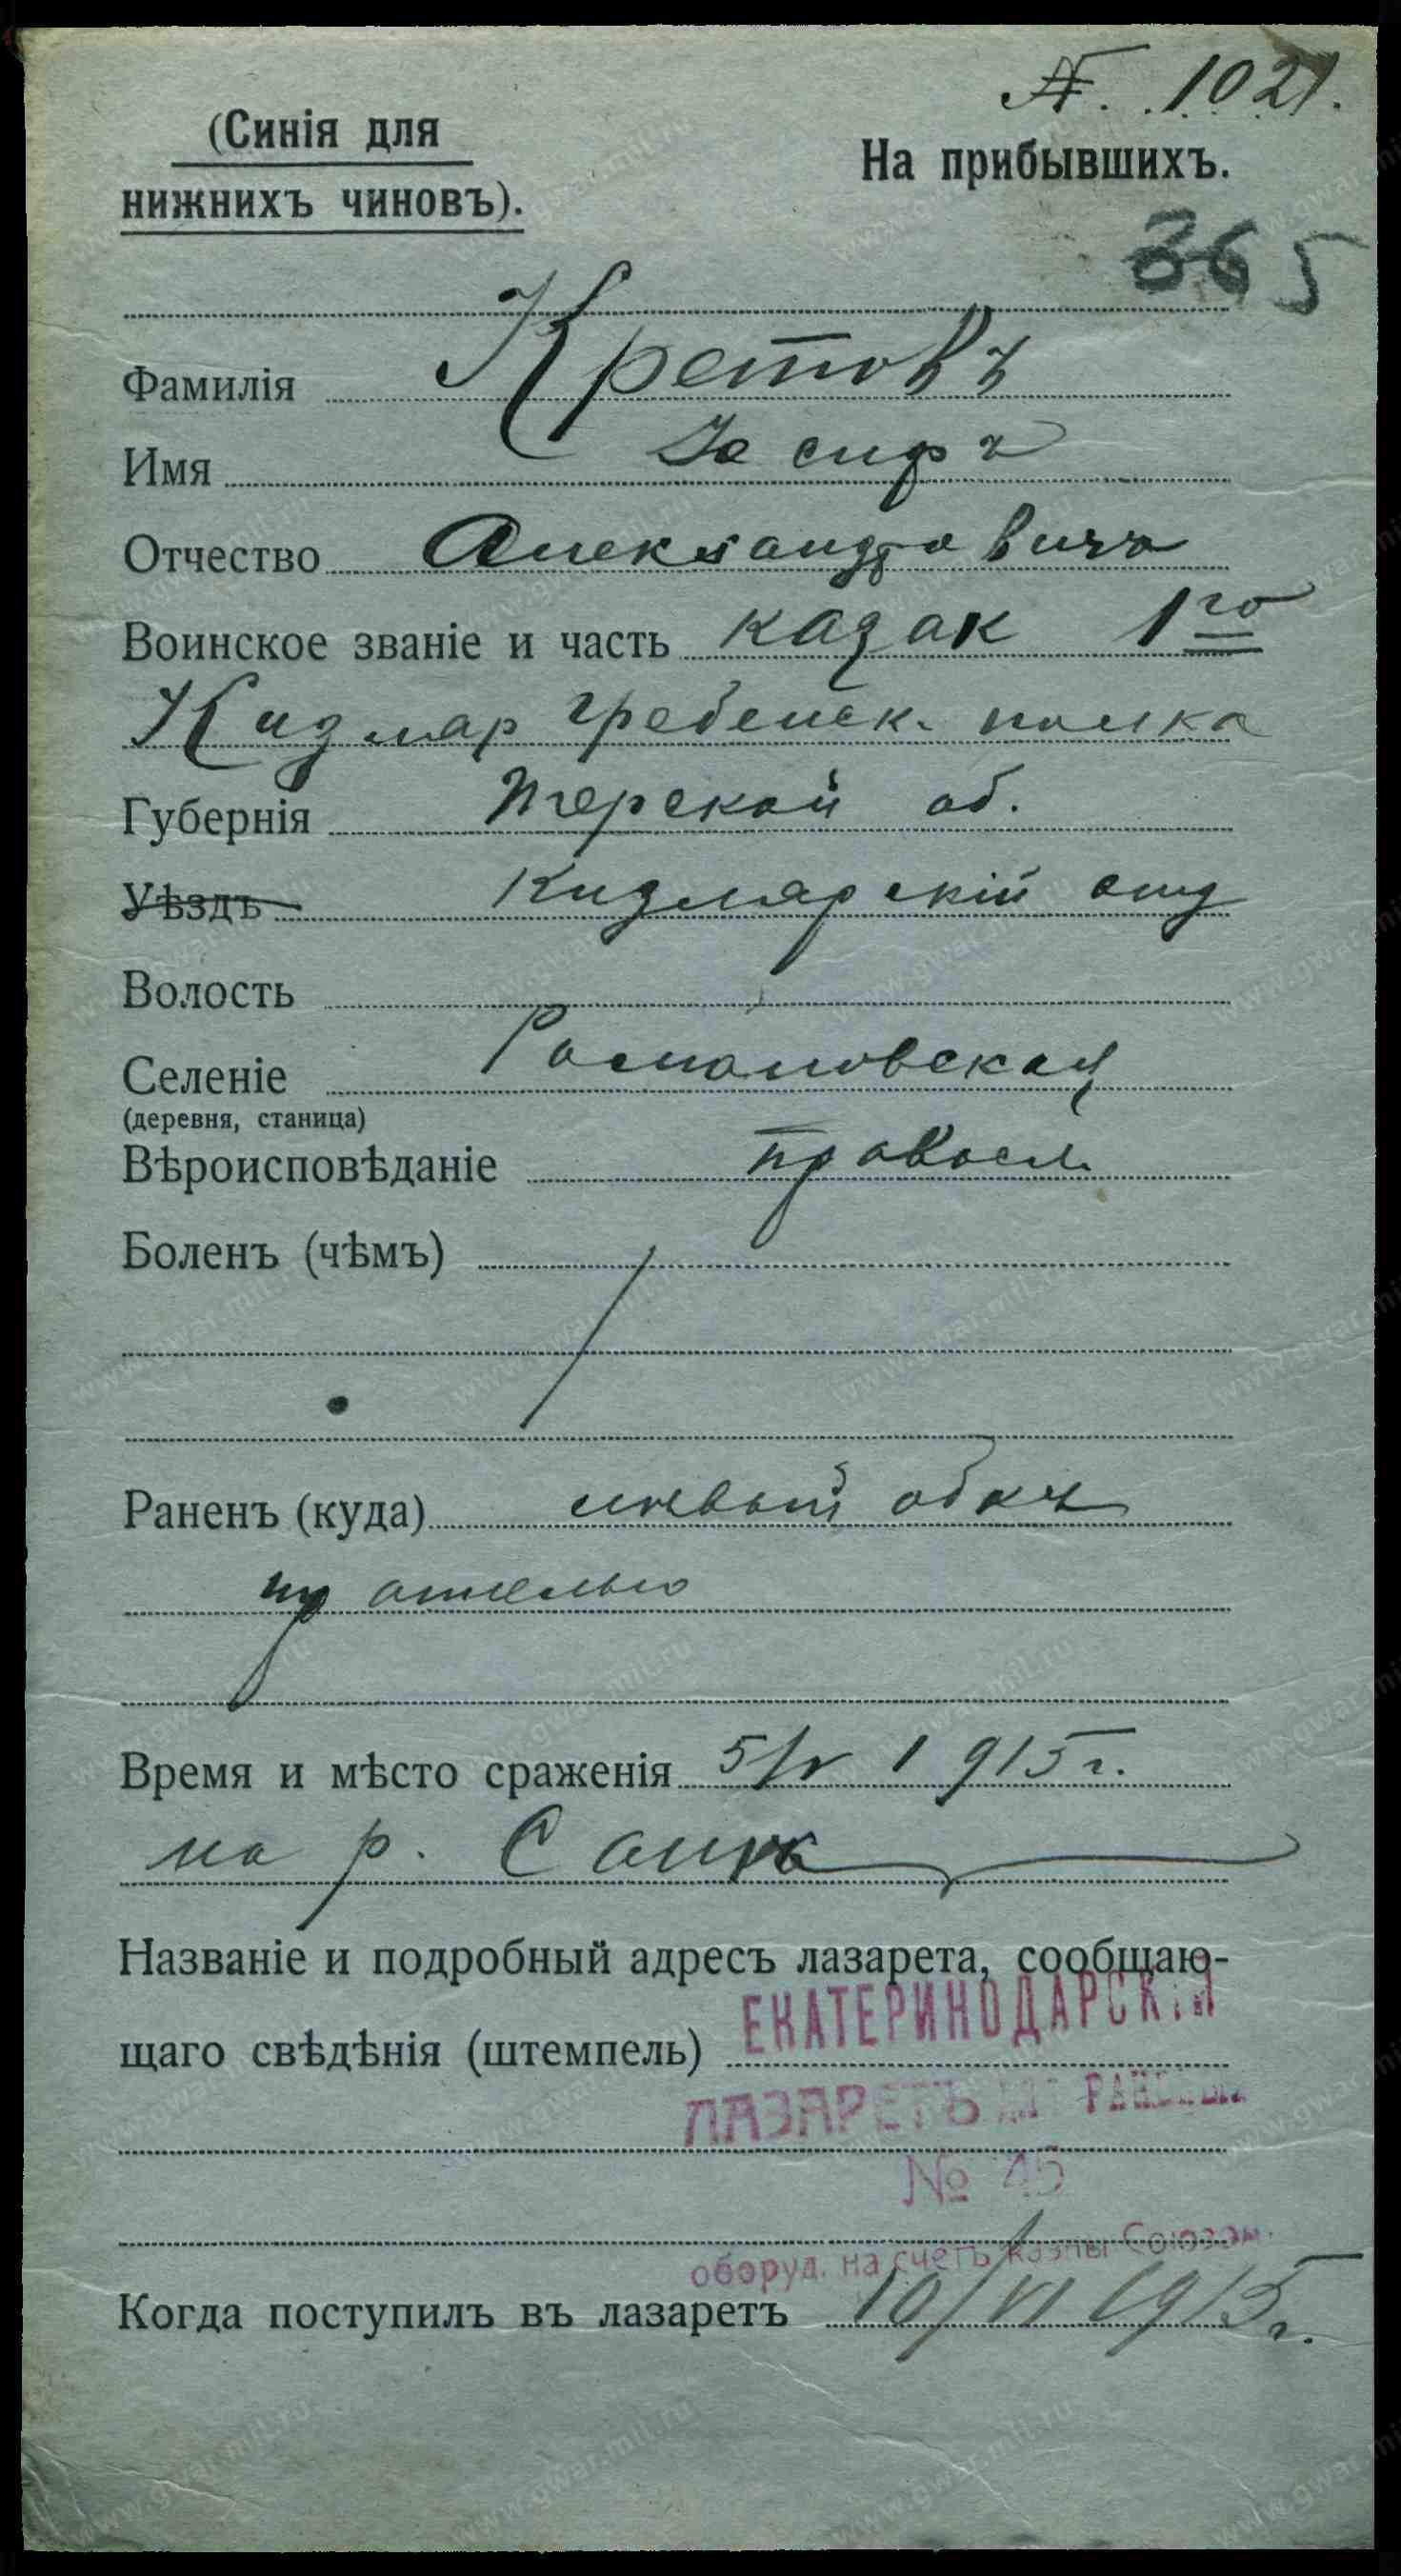 №. 1021.
(Синія для
На прибывшихъ.
нижнихъ чиновъ).
365
Фамилія Кретовъ
Имя Іосифъ
Отчество Александровичъ
Воинское званіе и часть казак 1го
Кизляр гребенск. полка
Губернія Терской об.
Уѣздъ Кизлярскій отд
Волость
Селеніе Романовская
(деревня, станица)
Вѣроисповѣданіе правосл.
Боленъ (чѣмъ)
Раненъ (куда) лѣвый бокъ
Время и мѣсто сраженія 5/V 1915 г.
на р. Санѣ
Названіе и подробный адресъ лазарета, сообщаю-
щаго свѣдѣнія (штемпель) ЕКАТЕРИНОДАРСКІЙ
ЛАЗАРЕТЪ
№ 45
оборуд. на счетъ казны Союзом.
Когда поступилъ въ лазаретъ 10/VI 1915 г.
www.gwar.mil.ru